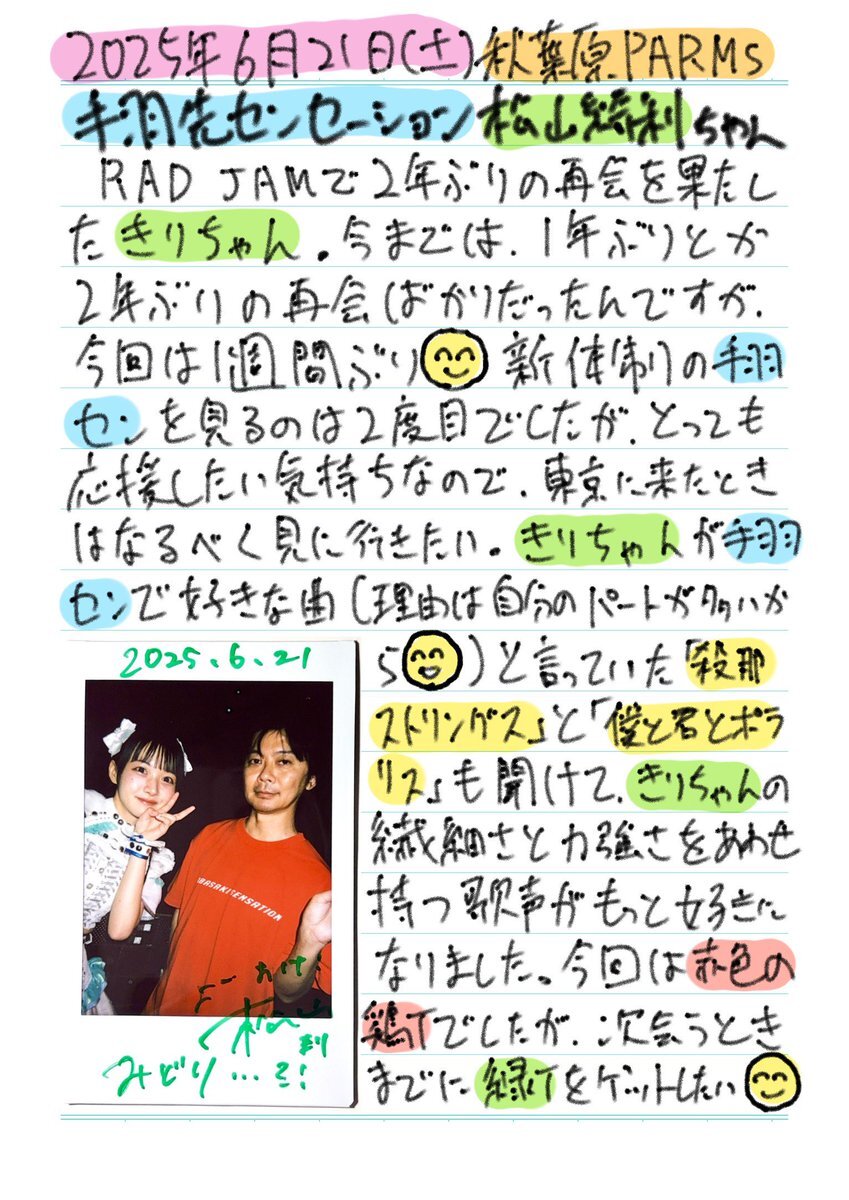 2025年6月21日(土)秋葉原PARMS
手羽先センセーション 松山綺利ちゃん
RAD JAMで2年ぶりの再会を果たし
たきりちゃん。今までは、1年ぶりとか
2年ぶりの再会ばかりだったんですが、
今回は1週間ぶり 新体制の手羽
センを見るのは2度目でしたが、とっても
応援したい気持ちなので、東京に来たとき
はなるべく見に行きたい。きりちゃんが手羽
センで好きな曲(理由は自分のパートが多いか
ら)と言っていた「殺那
ストリングス」と「僕と君とポラ
リス」も聞けて、きりちゃんの
繊細さと力強さをあわせ
持つ歌声がもっと好きに
なりました。今回は赤色の
鶏Tでしたが、次会うとき
までに緑Tをゲットしたい
2025.6.21
BASAKI SENSATION
みどり…ミ!